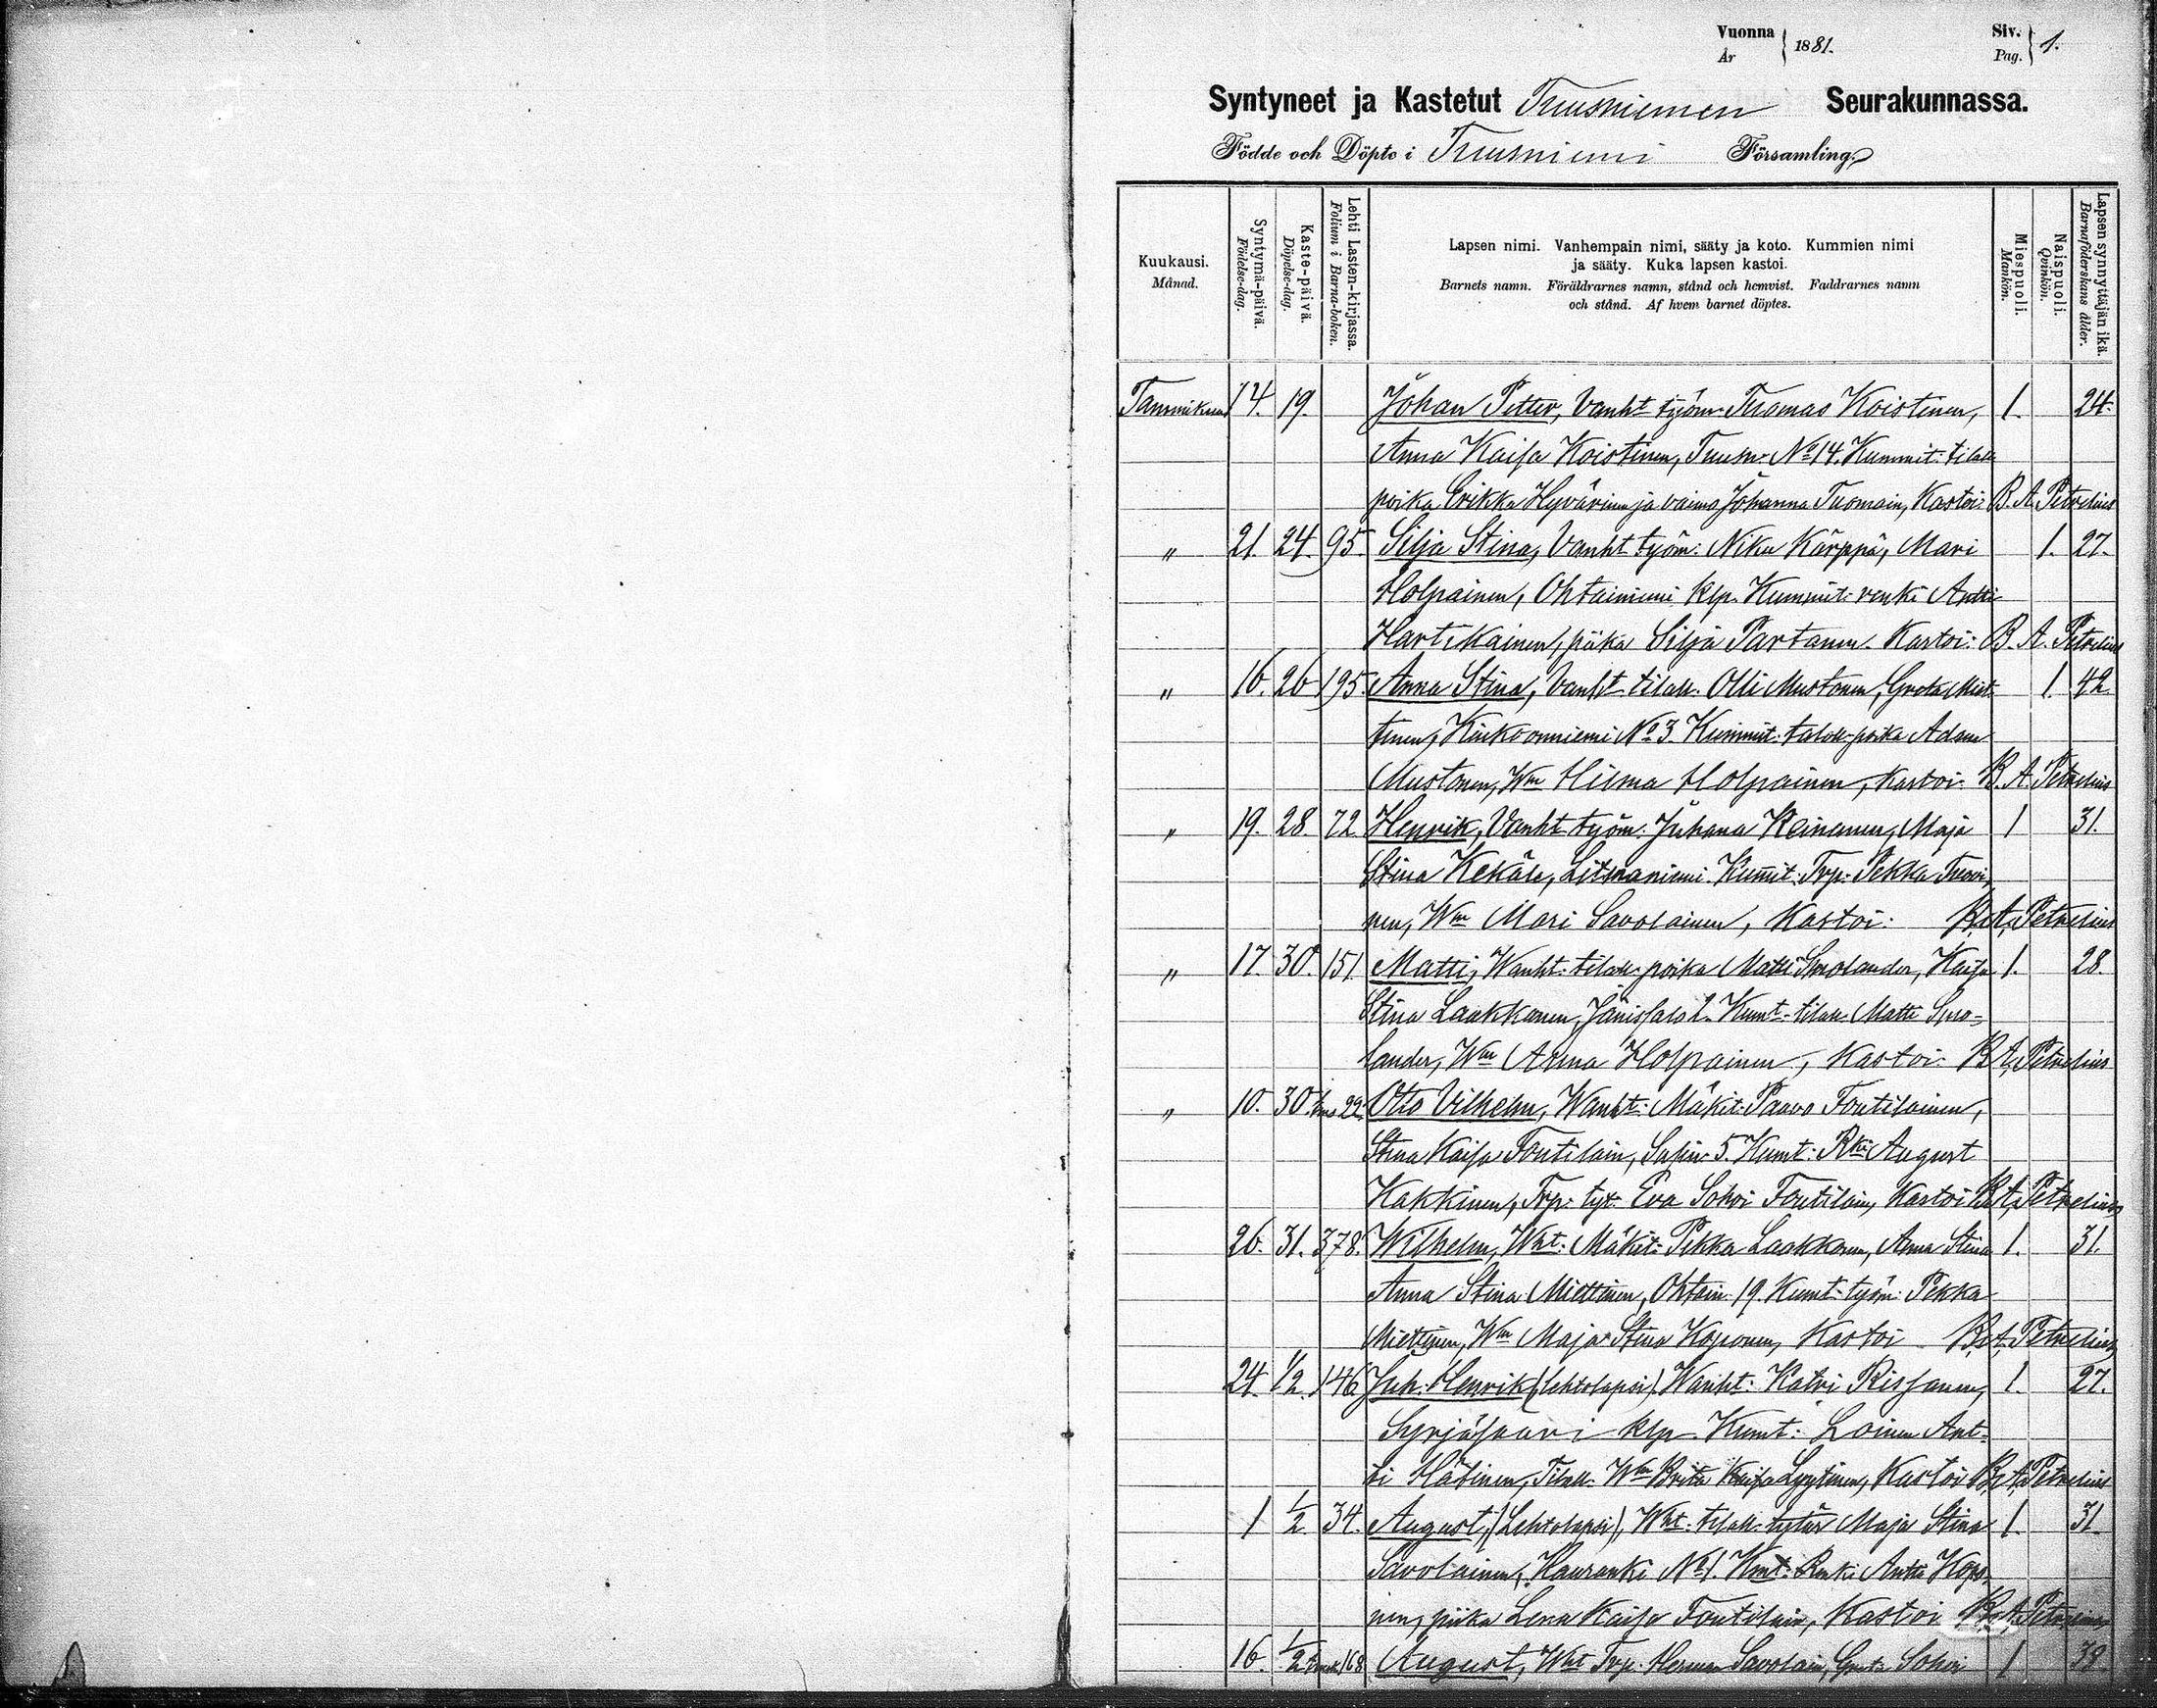 Vuonna
År
1881.
Siv.
Pag.
1.
Syntyneet ja Kastetut Tuusniemen Seurakunnassa.
Födde och Döpte i Tuusniemi Församling.
Kuukausi.
Månad.
Syntymä-päivä.
Födelse-dag.
Kaste-päivä.
Döpelse-dag.
Lehti Lasten-kirjassa.
Folium i Barna-boken.
Lapsen nimi. Vanhempain nimi, sääty ja koto. Kummien nimi
ja sääty. Kuka lapsen kastoi.
Barnets namn. Föräldrarnes namn, stånd och hemvist. Faddrarnes namn
och stånd. Af hvem barnet döptes.
Miespuoli.
Mankön.
Naispuoli.
Qvinkön.
Lapsen synnyttäjän ikä.
Barnaföderskans ålder.
Tammikuu 14. 19. Johan Petter, Vanht työm. Tuomas Koistinen, 1. 24.
Anna Kaisa Koistinen, Tuusn. No 14. Kummit: tilall.
poika Erikka Hyvärinen ja vaimo Johanna Tuomain, Kastoi: B. A. Petrelius
" 21. 24. 95. Silja Stina, Vanht työm: Niku Kärppä, Mari 1. 27.
Holpainen, Ohtainiemi klp. Kummit: renki Antti
Hartikainen, piika Silja Partanen. Kastoi: B. A. Petrelius
" 16. 26 195. Anna Stina, Vanht. tilall. Olli Mustonen, Greta Miet- 1. 42.
tinen, Kiukoonniemi No 3. Kummit: talon-poika Adam
Mustonen, Wm Hilma Holpainen, Kastoi: B. A. Petrelius
" 19. 28. 72. Henrik, Vanht työm: Juhana Keinanen, Maja 1 31.
Stina Kekäle, Litmaniemi. Kumit: Trp. Pekka Tuovi-
nen, Wm Mari Savolainen, Kastoi: B. A. Petrelius
" 17. 30. 151. Matti, Wanht: tilall. poika Matti Smolander, Kaisa 1. 28.
Stina Laakkonen, Jänissalo 2. Kumt: tilall. Matti Smo-
lander, Wm Anna Holpainen, Kastoi: B. A. Petrelius
" 10. 30. 22. Otto Vilhelm, Wanht: Mäkit: Paavo Toutilainen,
Stina Kaisa Toutilain, 5. Kumt: Rki August
Kakkinen, Trp: tyt. Eva Sohvi Toutilain, Kastoi B. A. Petrelius
26. 31. 378. Wilhelm, Wht: Mäkit: Pekka Laakkonen, Anna Stina 1. 31.
Anna Stina Miettinen, Ohtain. 19. Kumt: työm: Pekka
Miettinen, Wm Maja Stina Koponen, Kastoi B. A. Petrelius
24. 1/2. 146 Juh. Henrik (lehtolapsi). Wanht: Katri Rissanen, 1. 27.
Syrjäsaari klp. Kumt: Loinen Ant-
ti Hätinen, Tilall. Wm Brita Kaisa Lyytinen, Kastoi B. A. Petrelius
1 1/2 34. August, (Lehtolapsi), Wht: tilall. tytär Maja Stina 1. 31.
Savolainen, No 1. Kmt: Renki Antti Kopo-
nen, piika Lena Kaisa Toutilain, Kastoi B. A. Petrelius
16. 1/2 168 August, Wht Trp. Herman Savolain, Greta Sohvi 1 38.